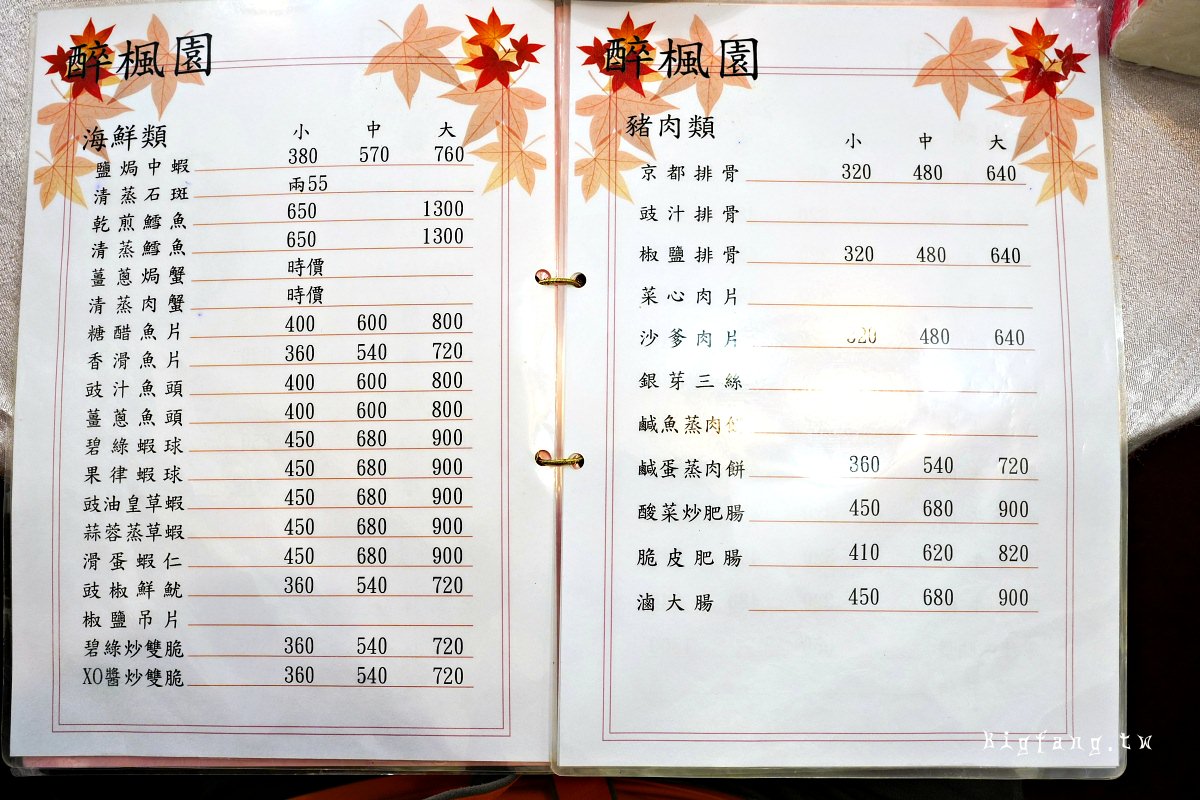 醉楓園
海鮮類 小 中 大
鹽焗中蝦 380 570 760
清蒸石斑 兩55
乾煎鱈魚 650 1300
清蒸鱈魚 650 1300
薑蔥焗蟹 時價
清蒸肉蟹 時價
糖醋魚片 400 600 800
香滑魚片 360 540 720
豉汁魚頭 400 600 800
薑蔥魚頭 400 600 800
碧綠蝦球 450 680 900
果律蝦球 450 680 900
豉油皇草蝦 450 680 900
蒜蓉蒸草蝦 450 680 900
滑蛋蝦仁 450 680 900
豉椒鮮魷 360 540 720
椒鹽吊片
碧綠炒雙脆 360 540 720
XO醬炒雙脆 360 540 720
醉楓園
豬肉類 小 中 大
京都排骨 320 480 640
豉汁排骨
椒鹽排骨 320 480 640
菜心肉片
沙爹肉片 320 480 640
銀芽三絲
鹹魚蒸肉
鹹蛋蒸肉餅 360 540 720
酸菜炒肥腸 450 680 900
脆皮肥腸 410 620 820
滷大腸 450 680 900
bigfang.tw